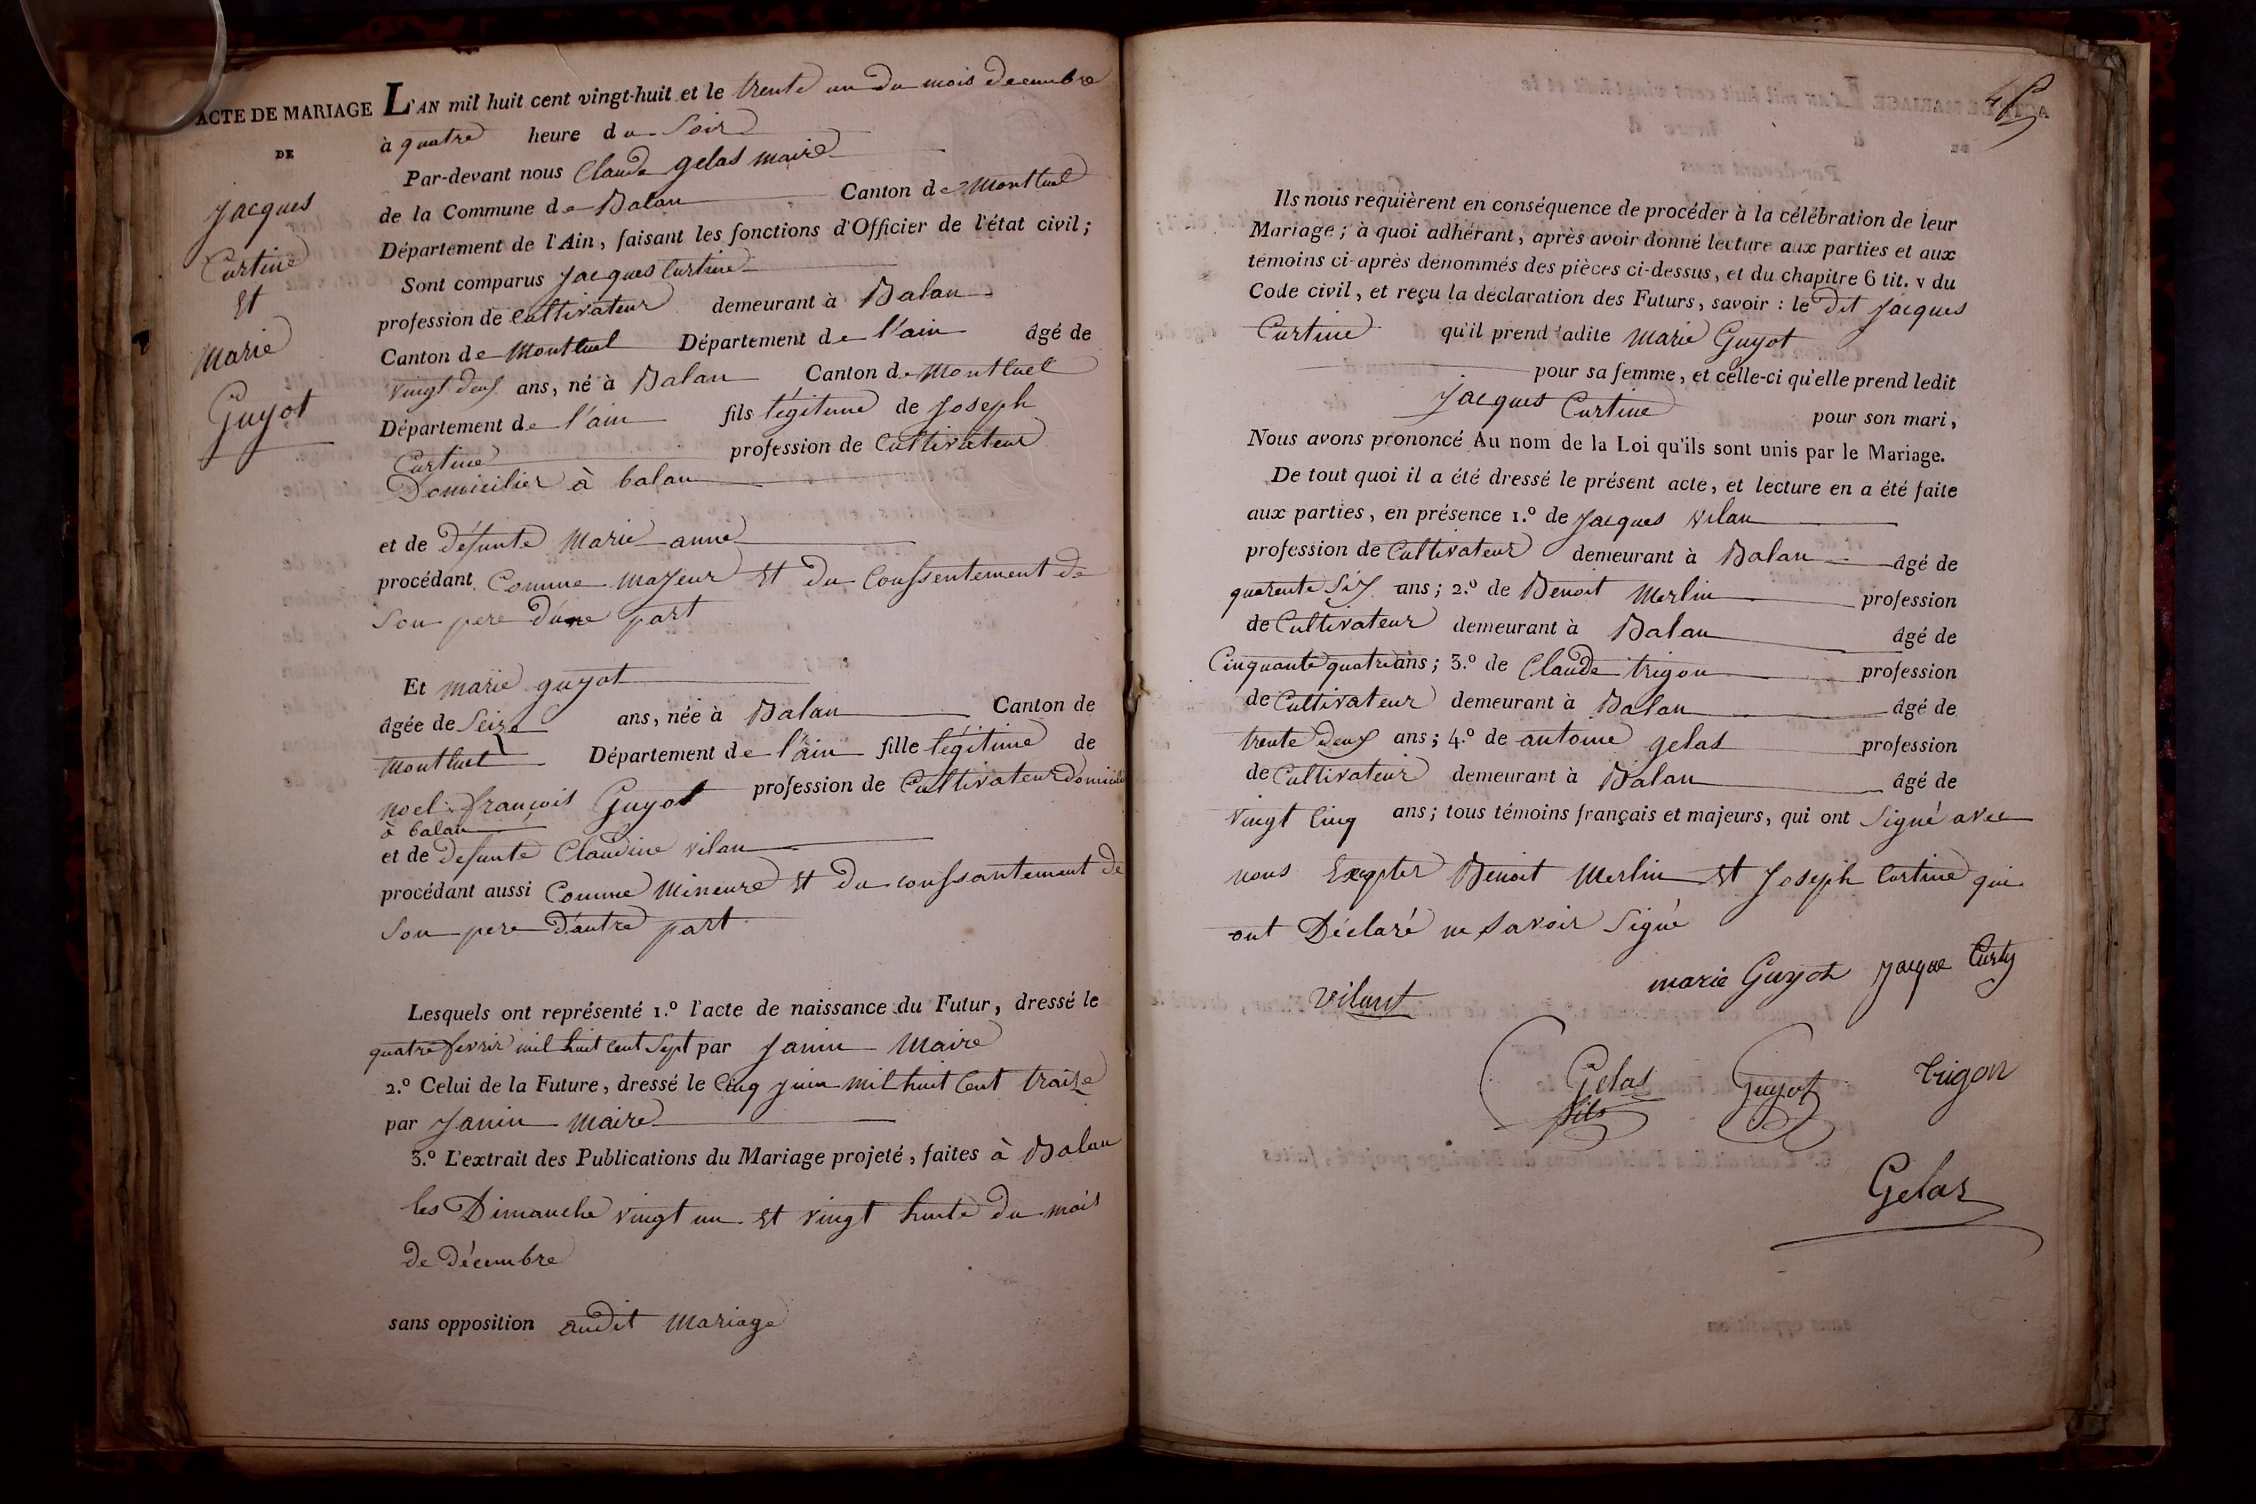 ACTE DE MARIAGE
DE
Jacques
Curtine
Et
Marie
Guyot
L'AN mil huit cent vingt-huit et le trente un du mois decembre
à quatre heure du Soir
Par-devant nous Claude gelas maire
de la Commune de Balan Canton de Montluel
Département de l'Ain, faisant les fonctions d'Officier de l'état civil;
Sont comparus Jacques Curtine
profession de Cultivateur demeurant à Balan
Canton de Montluel Département de l'ain âgé de
vingt deux ans, né à Balan Canton de Montluel
Département de l'ain fils légitime de Joseph
Curtine profession de Cultivateur
Domicilier à balan
et de défunte Marie anne
procédant Comme Majeur Et du Conssentement de
Son pere d'une part
Et marie guyot
âgée de Seize ans, née à Balan Canton de
Montluel Département de l'ain fille légitime de
noel françois Guyot profession de Cultivateur Domicilié
à balan
et de defunte Claudine vilan
procédant aussi Comme Mineure Et du conssantement de
Son pere d'autre part
Lesquels ont représenté 1.º l'acte de naissance du Futur, dressé le
quatre fevrir mil huit cent Sept par Janin Maire
2.º Celui de la Future, dressé le Cinq juin mil huit Cent traize
par Janin Maire
3.º L'extrait des Publications du Mariage projeté, faites à Balan
les Dimanche vingt un Et vingt huite du mois
de Décembre
sans opposition audit Mariage
Ils nous requièrent en conséquence de procéder à la célébration de leur
Mariage; à quoi adhérant, après avoir donné lecture aux parties et aux
témoins ci-après dénommés des pièces ci-dessus, et du chapitre 6 tit. v du
Code civil, et reçu la déclaration des Futurs, savoir: le dit Jacques
Curtine qu'il prend ladite Marie Guyot
pour sa femme, et celle-ci qu'elle prend ledit
Jacques Curtine pour son mari,
Nous avons prononcé Au nom de la Loi qu'ils sont unis par le Mariage.
De tout quoi il a été dressé le présent acte, et lecture en a été faite
aux parties, en présence 1.º de Jacques vilan
profession de Cultivateur demeurant à Balan âgé de
quarente Six ans; 2.º de Benoit Merlin profession
de Cultivateur demeurant à Balan âgé de
Cinquante quatre ans; 3.º de Claude trigon profession
de Cultivateur demeurant à Balan âgé de
trente deux ans; 4.º de antoine gelas profession
de Cultivateur demeurant à Balan âgé de
vingt Cinq ans; tous témoins français et majeurs, qui ont Signé avec
nous Exepter Benoit Merlin Et Joseph Curtine qui
ont Déclaré ne Savoir Signé
marie Guyot Jacque Curty
vilant
Gelas fils Guyot trigon
Gelas